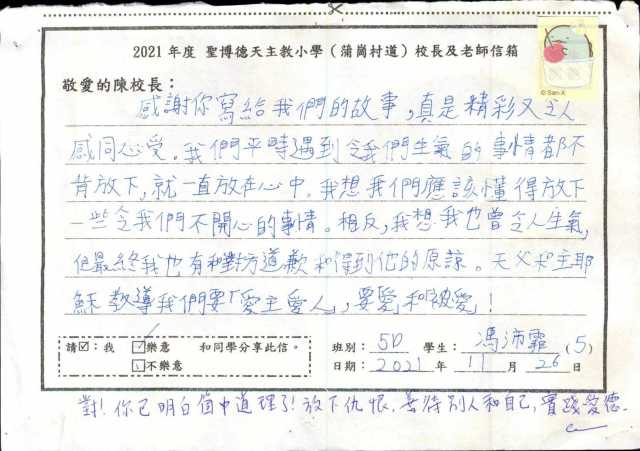 2021 年度 聖博德天主教小學（蒲崗村道）校長及老師信箱
© San-X
敬愛的陳校長：
感謝你寫給我們的故事，真是精彩又令人
感同心受。我們平時遇到令我們生氣的事情都不
肯放下，就一直放在心中。我想我們應該懂得放下
一些令我們不開心的事情。相反，我想我也曾令人生氣，
但最終我也有和對方道歉和得到他的原諒。天父和主耶
穌教導我們要「愛主愛人」，要愛和「被愛！
請☑：我 ☑樂意 和同學分享此信。
□不樂意
班別： 5D 學生： 馮沛霜 (5)
日期： 2021 年 11 月 26 日
對！你已明白箇中道理了！放下仇恨，善待別人和自己，實踐愛德。